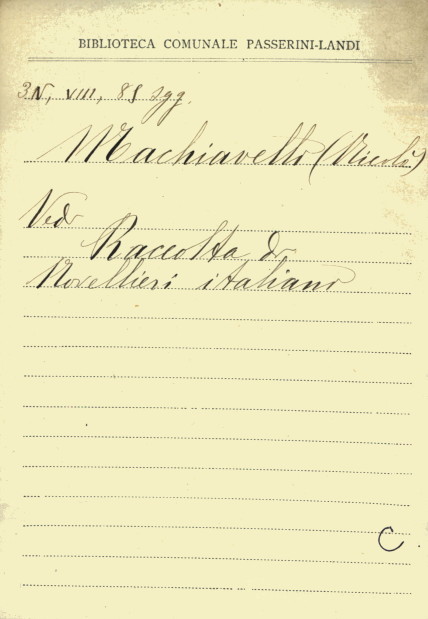 BIBLIOTECA COMUNALE PASSERINI-LANDI
3N, VIII, 81 sgg.
Machiavelli (Nicolò)
Vedi
Raccolta di
Novellieri italiani
C